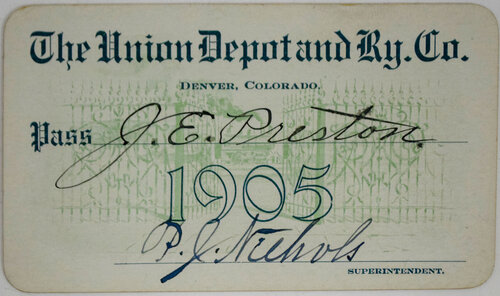 The Union Depot and Ry. Co.
Denver, Colorado.
Pass J. E. Preston.
1905
P. J. Nichols
SUPERINTENDENT.